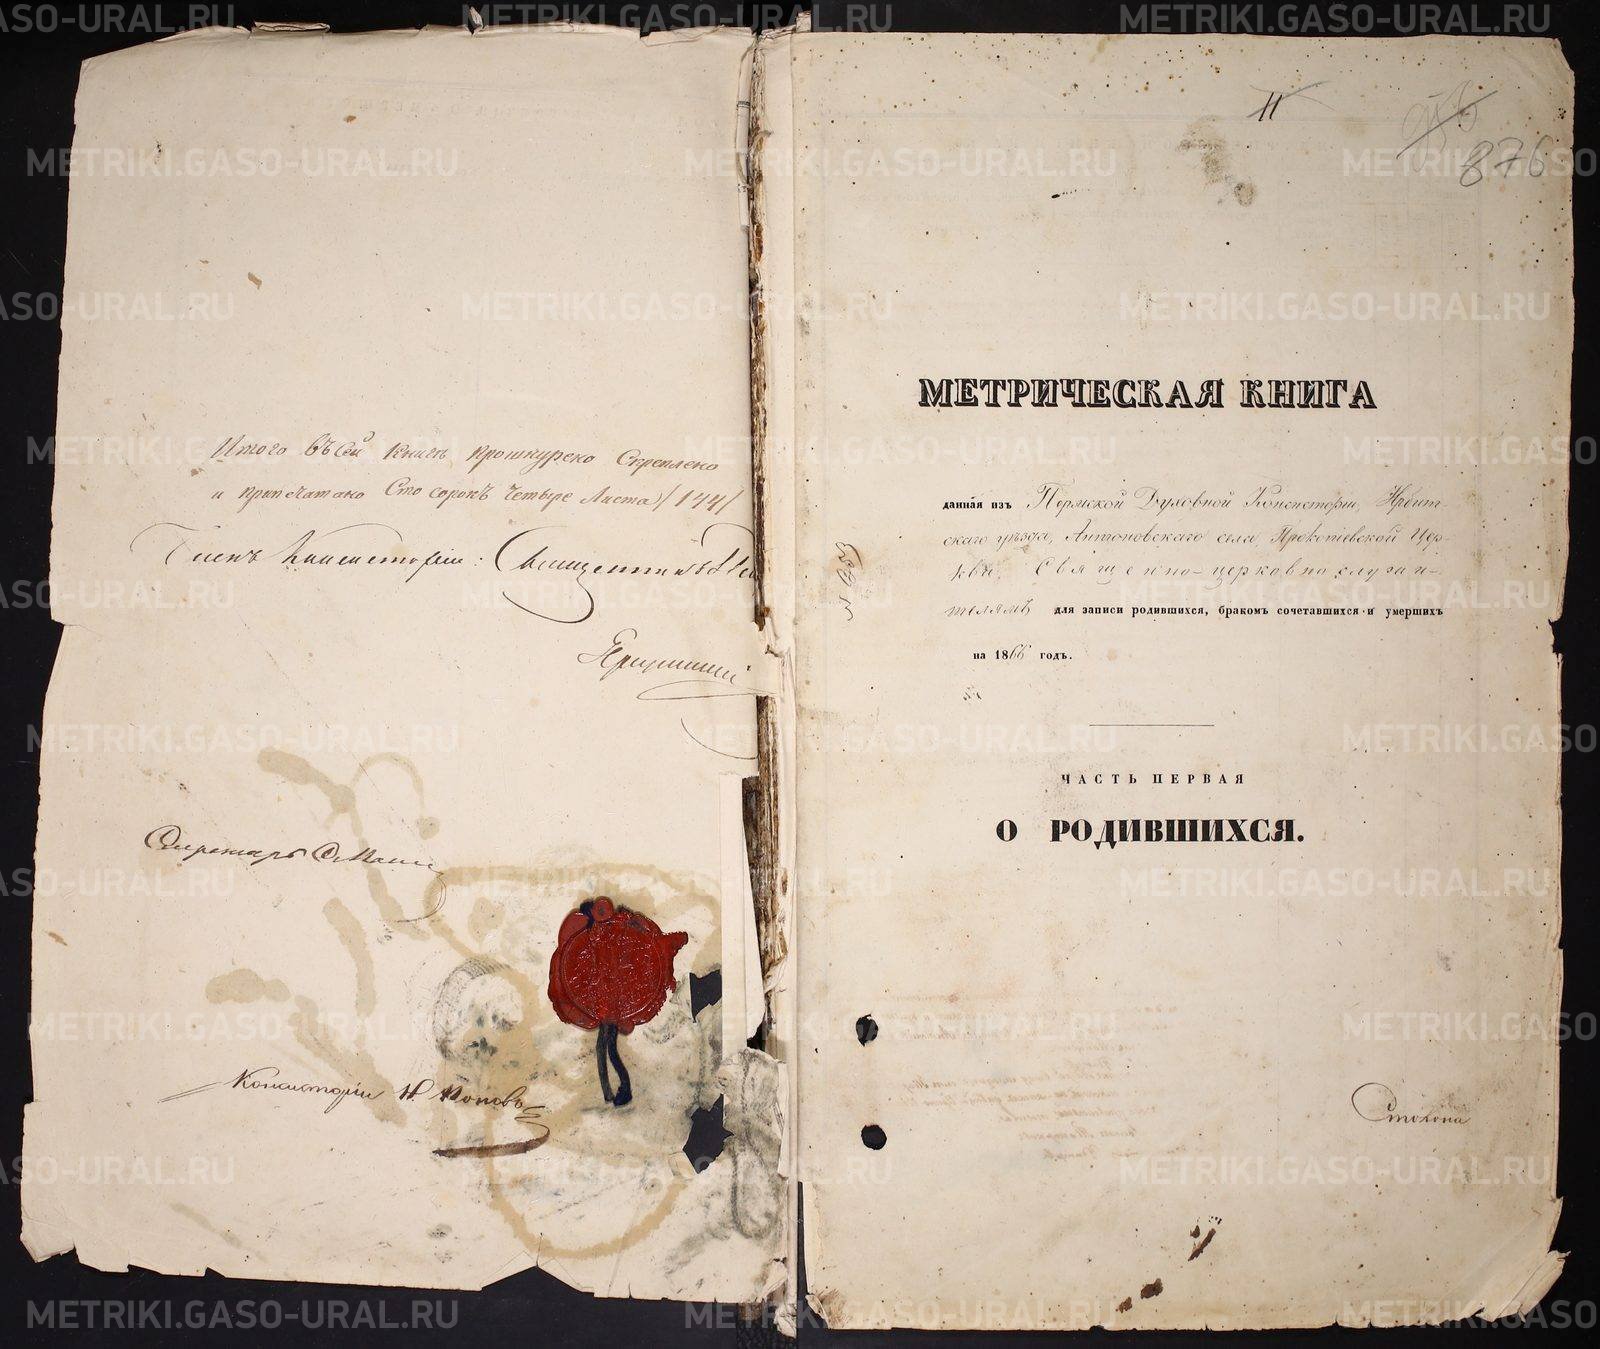 Итого въ сей книгѣ прошнурено скреплено
и припечатано Сто сорокъ четыре Листа /144/
Членъ Консисторіи: Священникъ
Секретарь
Консисторіи Н Поповъ
11
876
МЕТРИЧЕСКАЯ КНИГА
данная изъ Пермской Духовной Консисторіи, Ирбит-
скаго уѣзда, Антоновскаго села, Прокопіевской Цер-
кви, Священно-церковнослужи-
телямъ для записи родившихся, бракомъ сочетавшихся и умершихъ
на 1866 годъ.
ЧАСТЬ ПЕРВАЯ
О РОДИВШИХСЯ.
METRIKI.GASO-URAL.RU